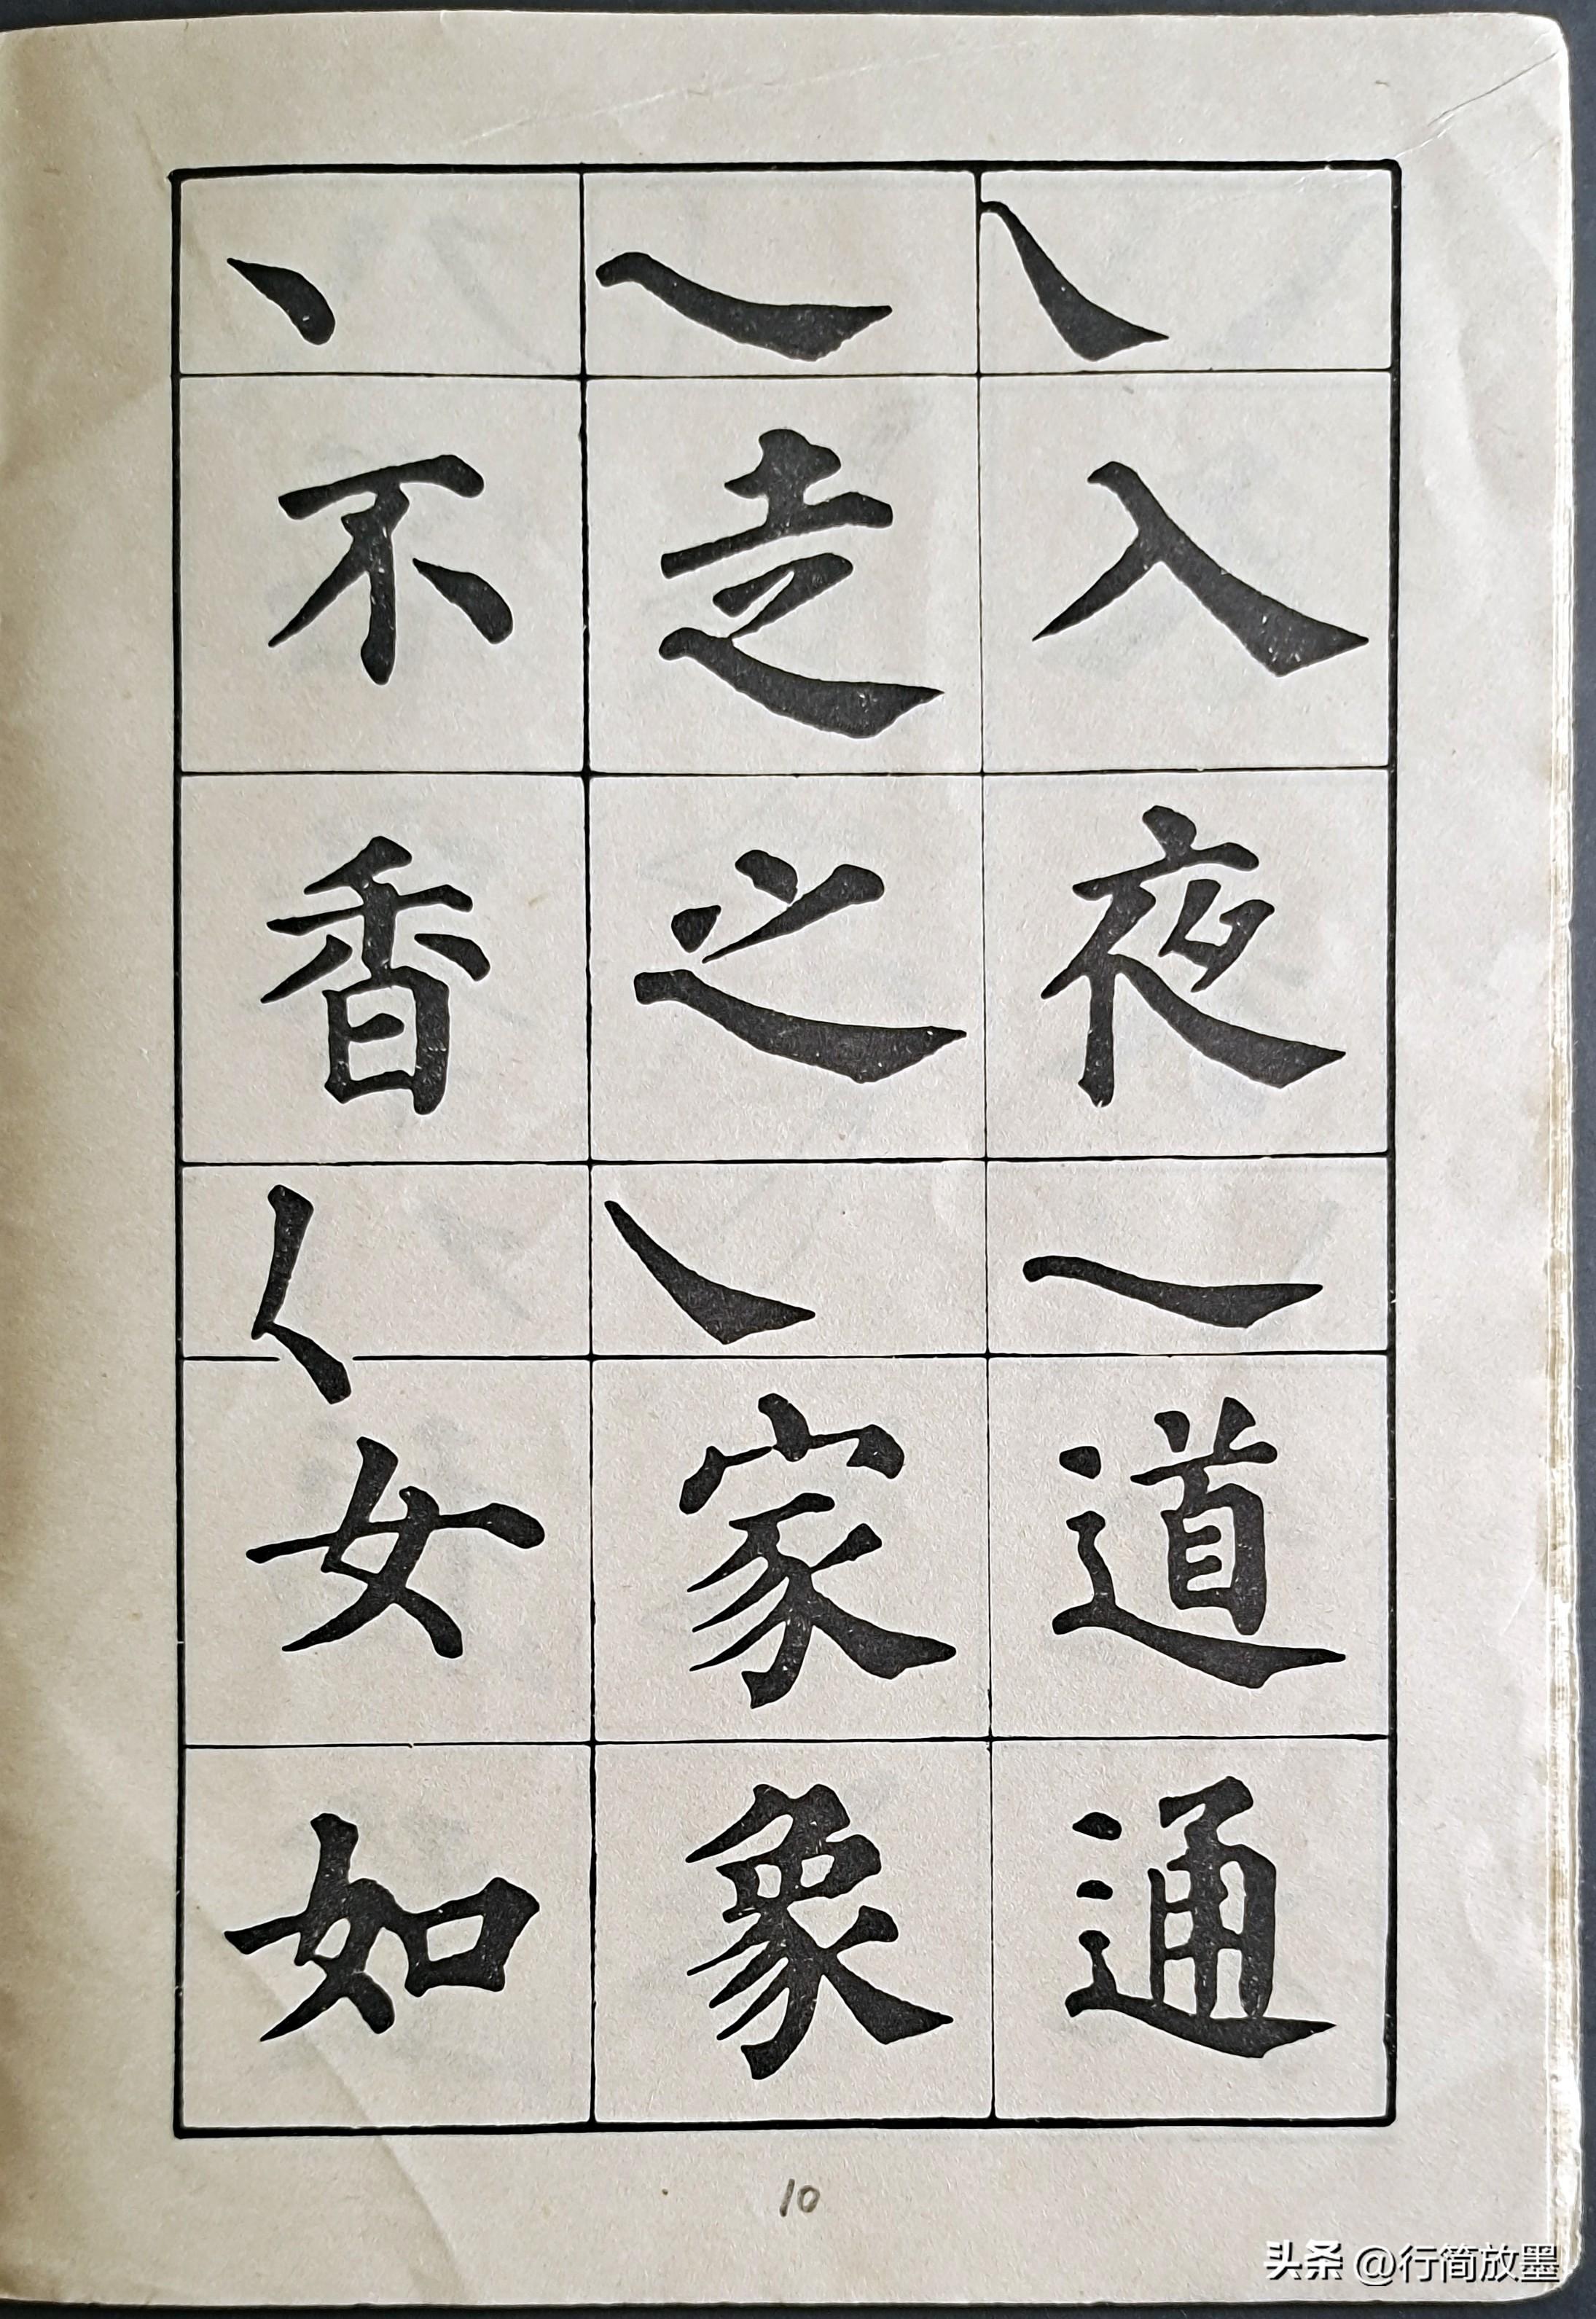 入夜道通
走之家象
不香女如
10
头条 @行简放墨